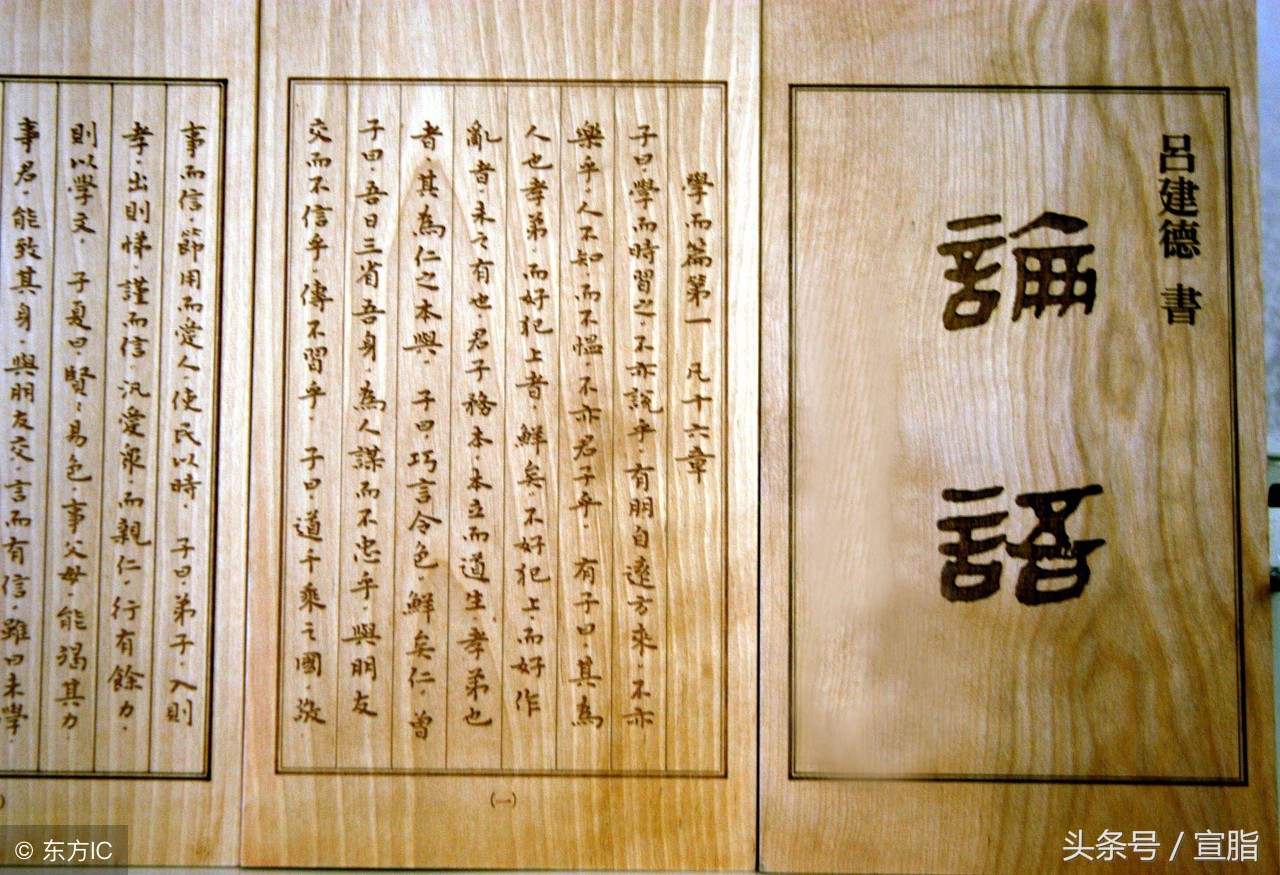 呂建德 書
論語
學而篇第一 凡十六章
子曰.學而時習之.不亦說乎.有朋自遠方來.不亦
樂乎.人不知.而不慍.不亦君子乎. 有子曰.其為
人也孝弟.而好犯上者.鮮矣.不好犯上.而好作
亂者.未之有也.君子務本.本立而道生.孝弟也
者.其為仁之本與. 子曰.巧言令色.鮮矣仁.曾
子曰.吾日三省吾身.為人謀而不忠乎.與朋友
交而不信乎.傳不習乎. 子曰.道千乘之國.敬
(一)
事而信.節用而愛人.使民以時. 子曰.弟子.入則
孝.出則悌.謹而信.汎愛眾.而親仁.行有餘力.
則以學文. 子夏曰.賢:易色.事父母.能竭其力
事君.能致其身.與朋友交.言而有信.雖曰未學.
© 东方IC
头条号 / 宣脂